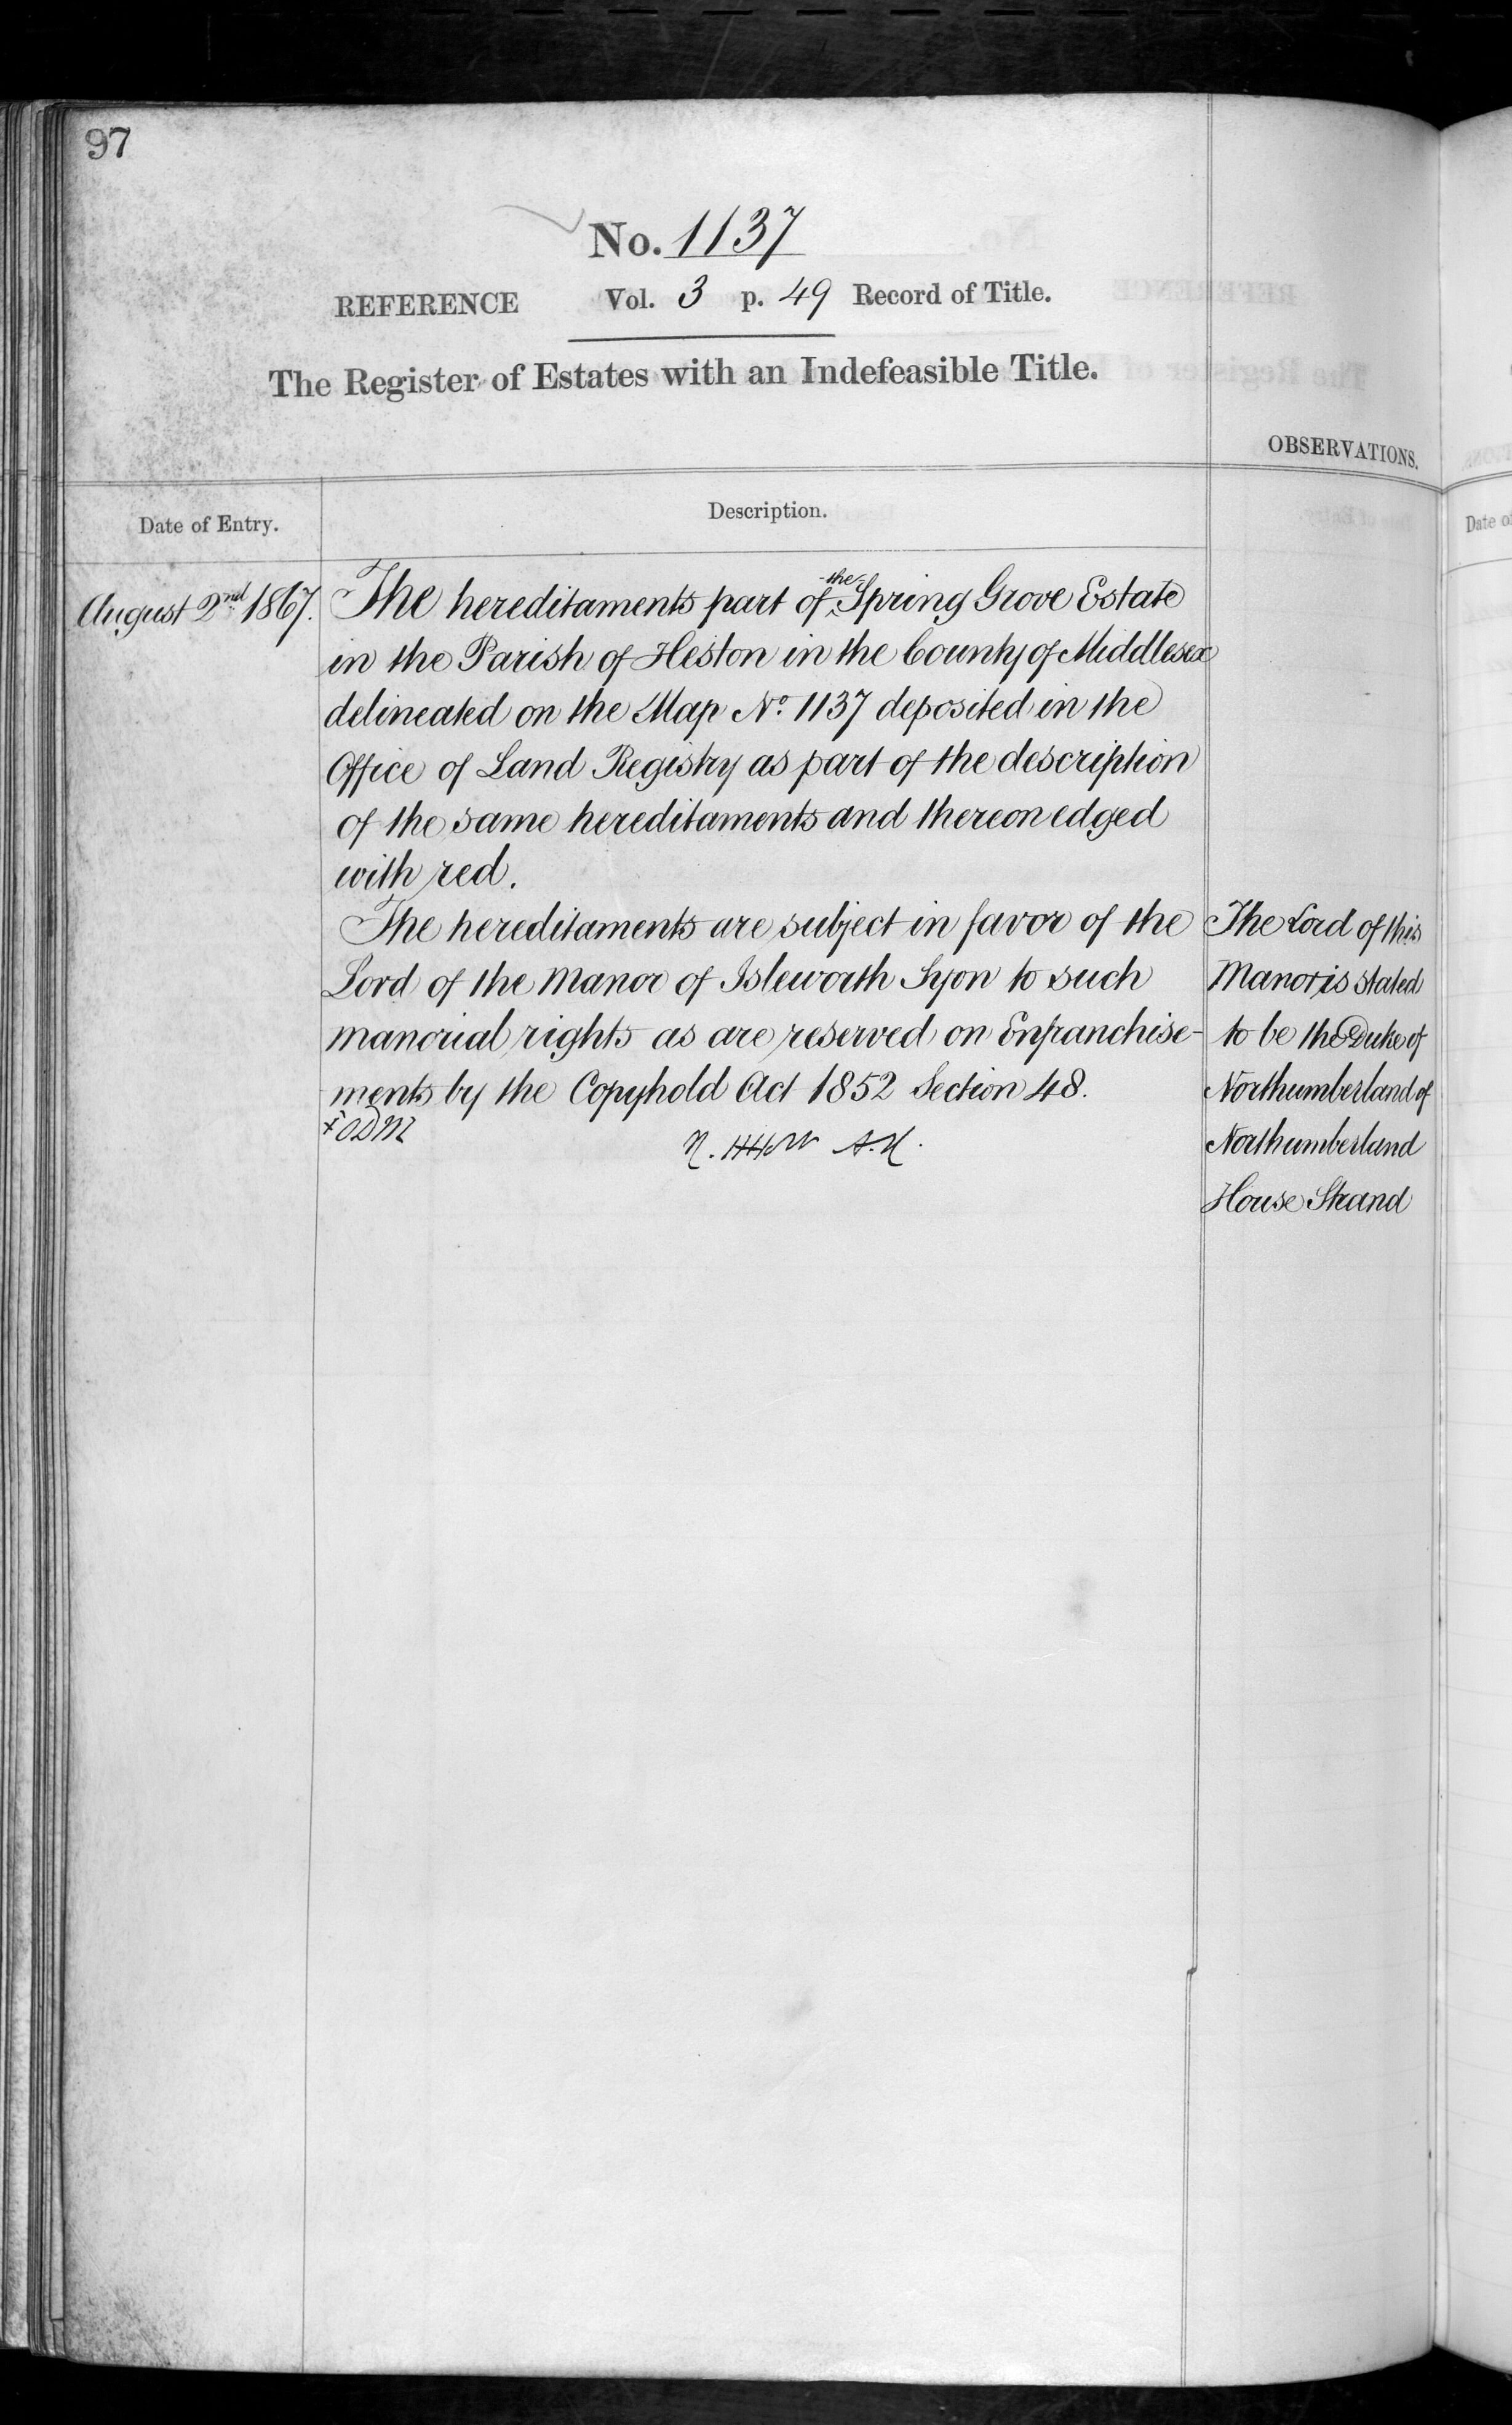 97
No. 1137
REFERENCE Vol. 3 p. 49 Record of Title.
The Register of Estates with an Indefeasible Title.
OBSERVATIONS.
Date of Entry.
Description.
August 2nd 1867.
The hereditaments part of the Spring Grove Estate
in the Parish of Heston in the County of Middlesex
delineated on the Map No. 1137 deposited in the
Office of Land Registry as part of the description
of the same hereditaments and thereon edged
with red.
The hereditaments are subject in favor of the
Lord of the Manor of Isleworth Syon to such
manorial rights as are reserved on Enfranchise-
ments by the Copyhold Act 1852 Section 48.
The Lord of this
Manor is stated
to be the Duke of
Northumberland of
Northumberland
House Strand
Date